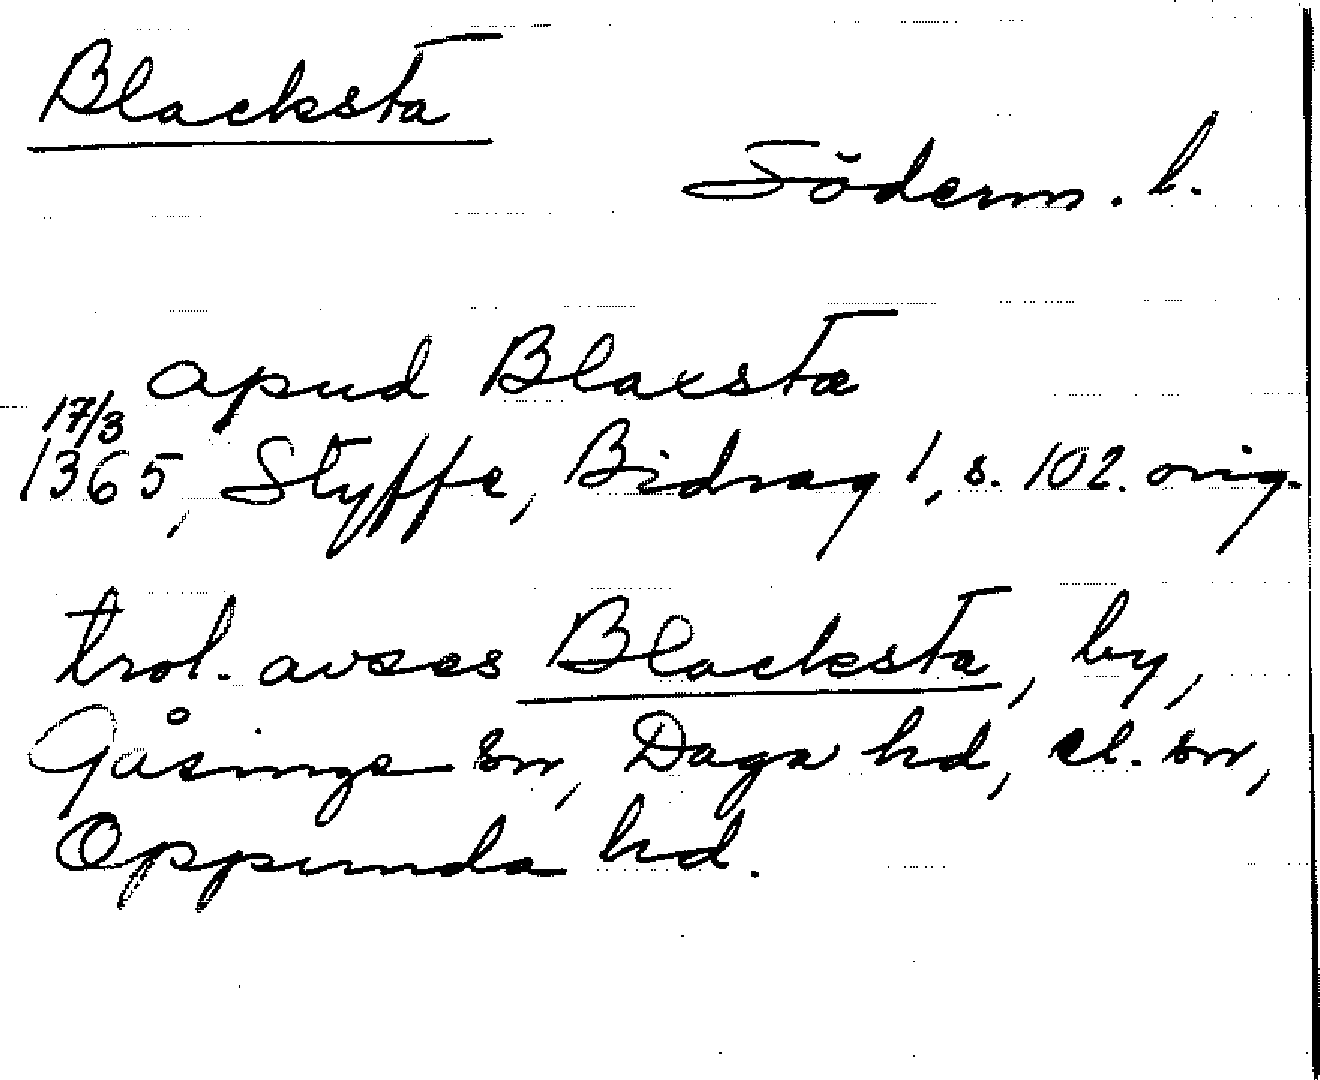 Blacksta
Söderm. l.
apud Blaxstæ
17/3
1365, Styffe, Bidrag 1, s. 102. orig.
trol. avses Blacksta, by,
Gåsinge sn, Daga hd, el. sn,
Oppunda hd.